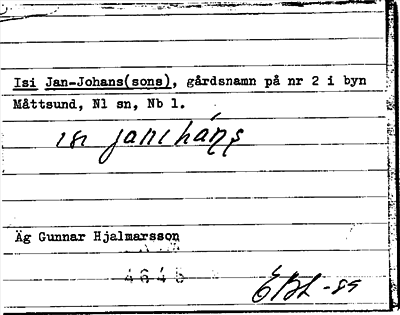 Isi Jan-Johans(sons), gårdsnamn på nr 2 i byn
Måttsund, Nl sn, Nb l.
Äg Gunnar Hjalmarsson
4645
EBL -89